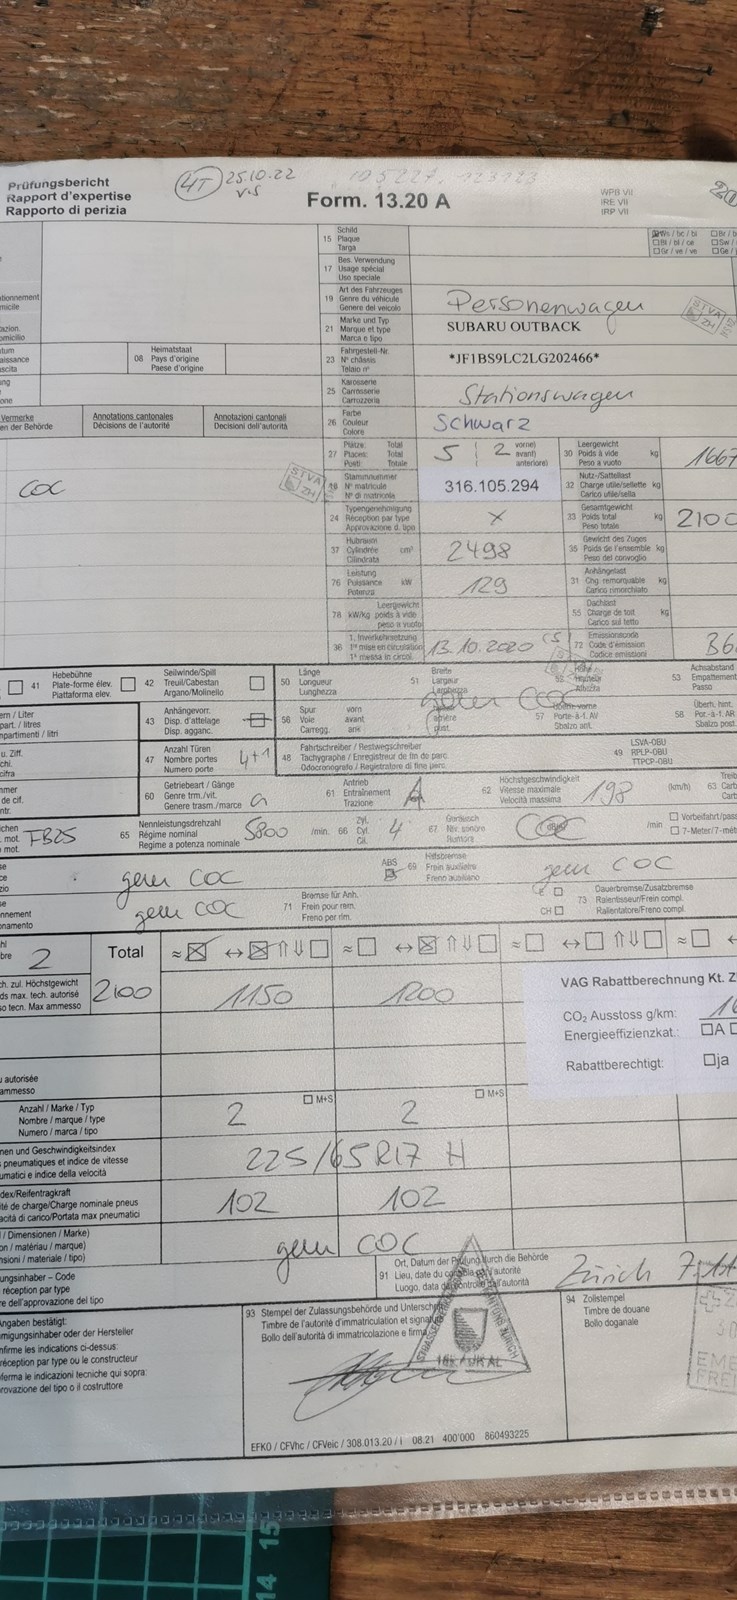 Prüfungsbericht
Rapport d'expertise
Rapporto di perizia
4T 25.10.22
Form. 13.20 A
WPB VII
IRE VII
IRP VII
15 Schild
Plaque
Targa
17 Bes. Verwendung
Usage spécial
Uso speciale
19 Art des Fahrzeuges
Genre du véhicule
Genere del veicolo
Personenwagen
21 Marke und Typ
Marque et type
Marca e tipo
SUBARU OUTBACK
08 Heimatstaat
Pays d'origine
Paese d'origine
23 Fahrgestell-Nr.
N° châssis
Telaio n°
*JF1BS9LC2LG202466*
25 Karosserie
Carrosserie
Carrozzeria
Stationswagen
Vermerke
en der Behörde
Annotations cantonales
Décisions de l'autorité
Annotazioni cantonali
Decisioni dell'autorità
26 Farbe
Couleur
Colore
Schwarz
27 Plätze: Total
Places: Total
Posti: Totale
5 2 vorne)
avant)
anteriore)
30 Leergewicht
Poids à vide kg
Peso a vuoto
1667
COC
STVA
ZH
18 Stammnummer
N° matricule
N° di matricola
316.105.294
32 Nutz-/Sattellast
Charge utile/sellette kg
Carico utile/sella
24 Typengenehmigung
Réception par type
Approvazione d. tipo
X
33 Gesamtgewicht
Poids total kg
Peso totale
2100
37 Hubraum
Cylindrée cm³
Cilindrata
2498
35 Gewicht des Zuges
Poids de l'ensemble kg
Peso del convoglio
76 Leistung
Puissance kW
Potenza
129
31 Anhängelast
Chg. remorquable kg
Carico rimorchiato
78 Leergewicht
kW/kg poids à vide
peso a vuoto
55 Dachlast
Charge de toit kg
Carico sul tetto
36 1. Inverkehrsetzung
1re mise en circulation
1a messa in circol.
13.10.2020
72 Emissionscode
Code d'émission
Codice emissioni
41 Hebebühne
Plate-forme élev.
Piattaforma elev.
42 Seilwinde/Spill
Treuil/Cabestan
Argano/Molinello
50 Länge
Longueur
Lunghezza
51 Breite
Largeur
Larghezza
53 Achsabstand
Empattement
Passo
gem COC
43 Anhängervorr.
Disp. d'attelage
Disp. agganc.
56 Spur vorn
Voie avant
Carregg. ant.
57 Überh. vorne
Porte-à-f. AV
Sbalzo ant.
58 Überh. hint.
Por.-à-f. AR
Sbalzo post.
47 Anzahl Türen
Nombre portes
Numero porte
4+1
48 Fahrtschreiber / Restwegschreiber
Tachygraphe / Enregistreur de fin de parc
Odocronografo / Registratore di fine perc.
49 LSVA-OBU
RPLP-OBU
TTPCP-OBU
60 Getriebeart / Gänge
Genre trm./vit.
Genere trasm./marce
a
61 Antrieb
Entraînement
Trazione
A
62 Höchstgeschwindigkeit
Vitesse maximale
Velocità massima
198 (km/h)
63
FB25
65 Nennleistungsdrehzahl
Régime nominal
Regime a potenza nominale
5800 /min.
66 Zyl.
Cyl.
Cil.
4
67 Geräusch
Niv. sonore
Rumore
COC
/min
Vorbeifahrt/pass
7-Meter/7-mèt
gem COC
ABS
69 Hilfsbremse
Frein auxiliaire
Freno ausiliario
gem COC
gem COC
71 Bremse für Anh.
Frein pour rem.
Freno per rim.
CH
73 Dauerbremse/Zusatzbremse
Ralentisseur/Frein compl.
Rallentatore/Freno compl.
2 Total
ch. zul. Höchstgewicht
ds max. tech. autorisé
so tecn. Max ammesso
2100 1150 1200
VAG Rabattberechnung Kt. Z
CO₂ Ausstoss g/km:
Energieeffizienzkat.: A
Rabattberechtigt: ja
Anzahl / Marke / Typ
Nombre / marque / type
Numero / marca / tipo
2 M+S 2 M+S
nen und Geschwindigkeitsindex
pneumatiques et indice de vitesse
umatici e indice della velocità
225/65 R17 H
dex/Reifentragkraft
ité de charge/Charge nominale pneus
acità di carico/Portata max pneumatici
102 102
/ Dimensionen / Marke)
on / matériau / marque)
nsioni / materiale / tipo)
gem COC
ungsinhaber – Code
réception par type
re dell'approvazione del tipo
91 Ort, Datum der Prüfung durch die Behörde
Lieu, date du contrôle par l'autorité
Luogo, data del controllo dell'autorità
Zürich
Angaben bestätigt:
migungsinhaber oder der Hersteller
nfirme les indications ci-dessus:
réception par type ou le constructeur
ferma le indicazioni tecniche qui sopra:
rovazione del tipo o il costruttore
93 Stempel der Zulassungsbehörde und Unterschrift
Timbre de l'autorité d'immatriculation et signature
Bollo dell'autorità di immatricolazione e firma
94 Zollstempel
Timbre de douane
Bollo doganale
EFKO / CFVhc / CFVeic / 308.013.20 / I 08.21 400'000 860493225
14 15